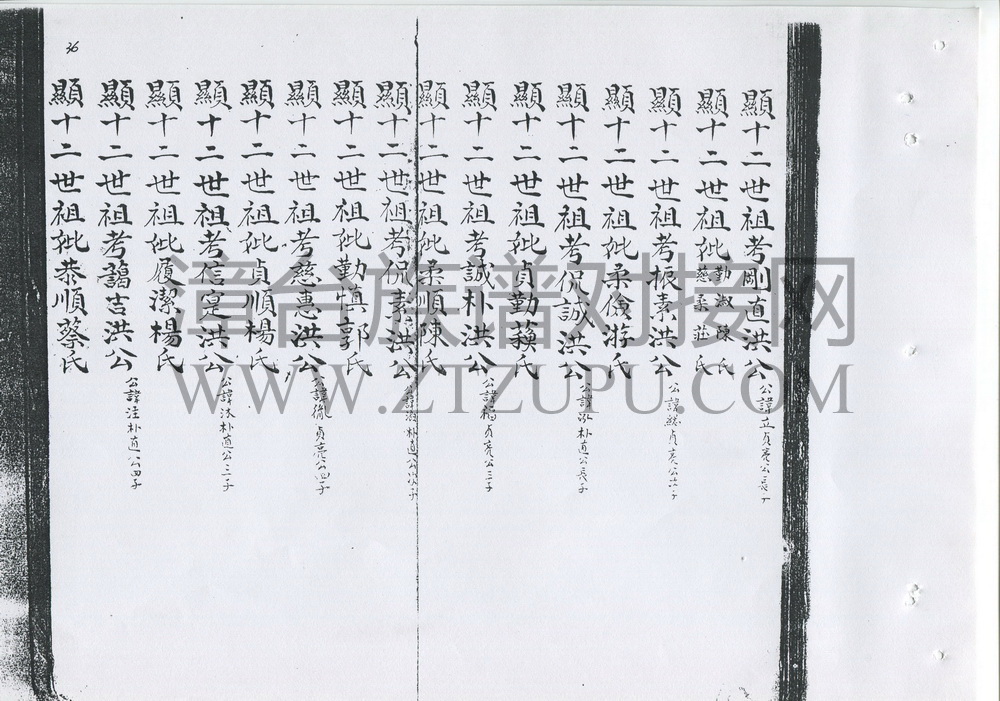 36
顯十二世祖考剛直洪公 公諱立貞亮公長子
顯十二世祖妣勤淑陳氏 慈柔莊氏
顯十二世祖考振素洪公 公諱 貞亮公 子
顯十二世祖妣柔儉游氏
顯十二世祖考侃誠洪公 公諱 朴直公長子
顯十二世祖妣貞勤蘓氏
顯十二世祖考誠朴洪公 公諱 貞亮公三子
顯十二世祖妣柔順陳氏
顯十二世祖考侃素洪公 公諱 朴直公 子
顯十二世祖妣勤慎郭氏
顯十二世祖考慈惠洪公 公諱 貞亮公四子
顯十二世祖妣貞順楊氏
顯十二世祖考信寔洪公 公諱沐朴直公三子
顯十二世祖妣履潔楊氏
顯十二世祖考藹吉洪公 公諱注朴直公四子
顯十二世祖妣恭順蔡氏
漳台族譜对接网
WWW.ZTZUPU.COM